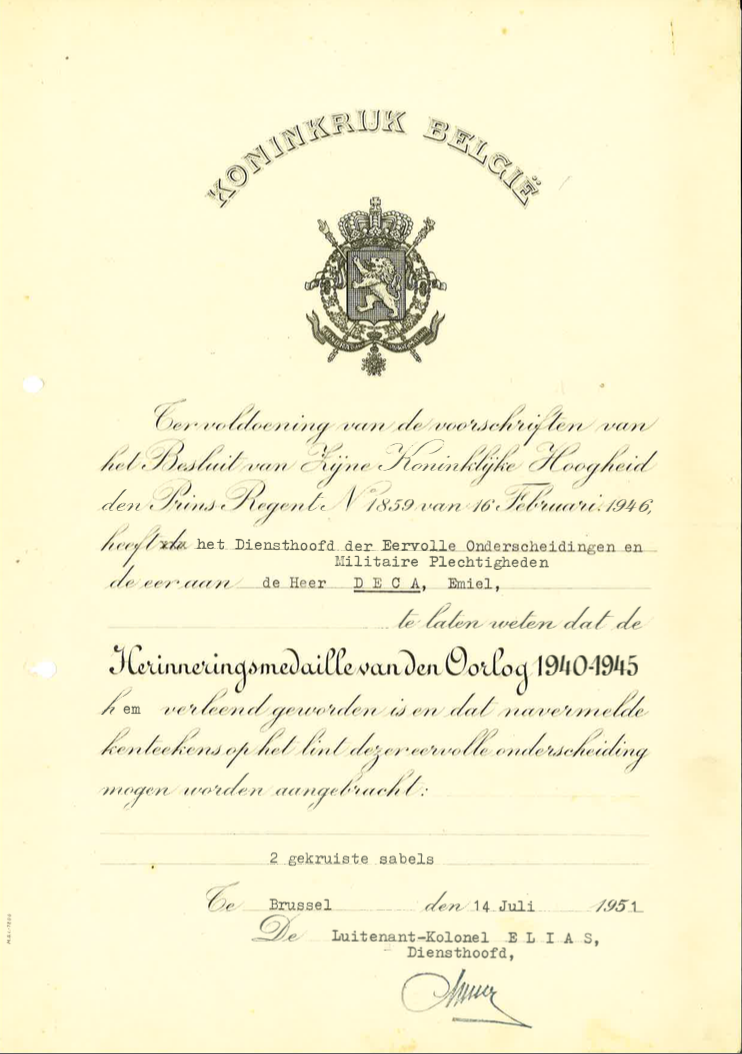 KONINKRIJK BELGIË
Ter voldoening van de voorschriften van
het Besluit van Zijne Koninklijke Hoogheid
den Prins Regent Nr 1859 van 16 Februari 1946,
heeft de het Diensthoofd der Eervolle Onderscheidingen en
Militaire Plechtigheden
de eer aan de Heer D E C A, Emiel,
te laten weten dat de
Herinneringsmedaille van den Oorlog 1940-1945
hem verleend geworden is en dat navermelde
kenteekens op het lint dezer eervolle onderscheiding
mogen worden aangebracht:
2 gekruiste sabels
Te Brussel den 14 Juli 1951
De Luitenant-Kolonel E L I A S,
Diensthoofd,